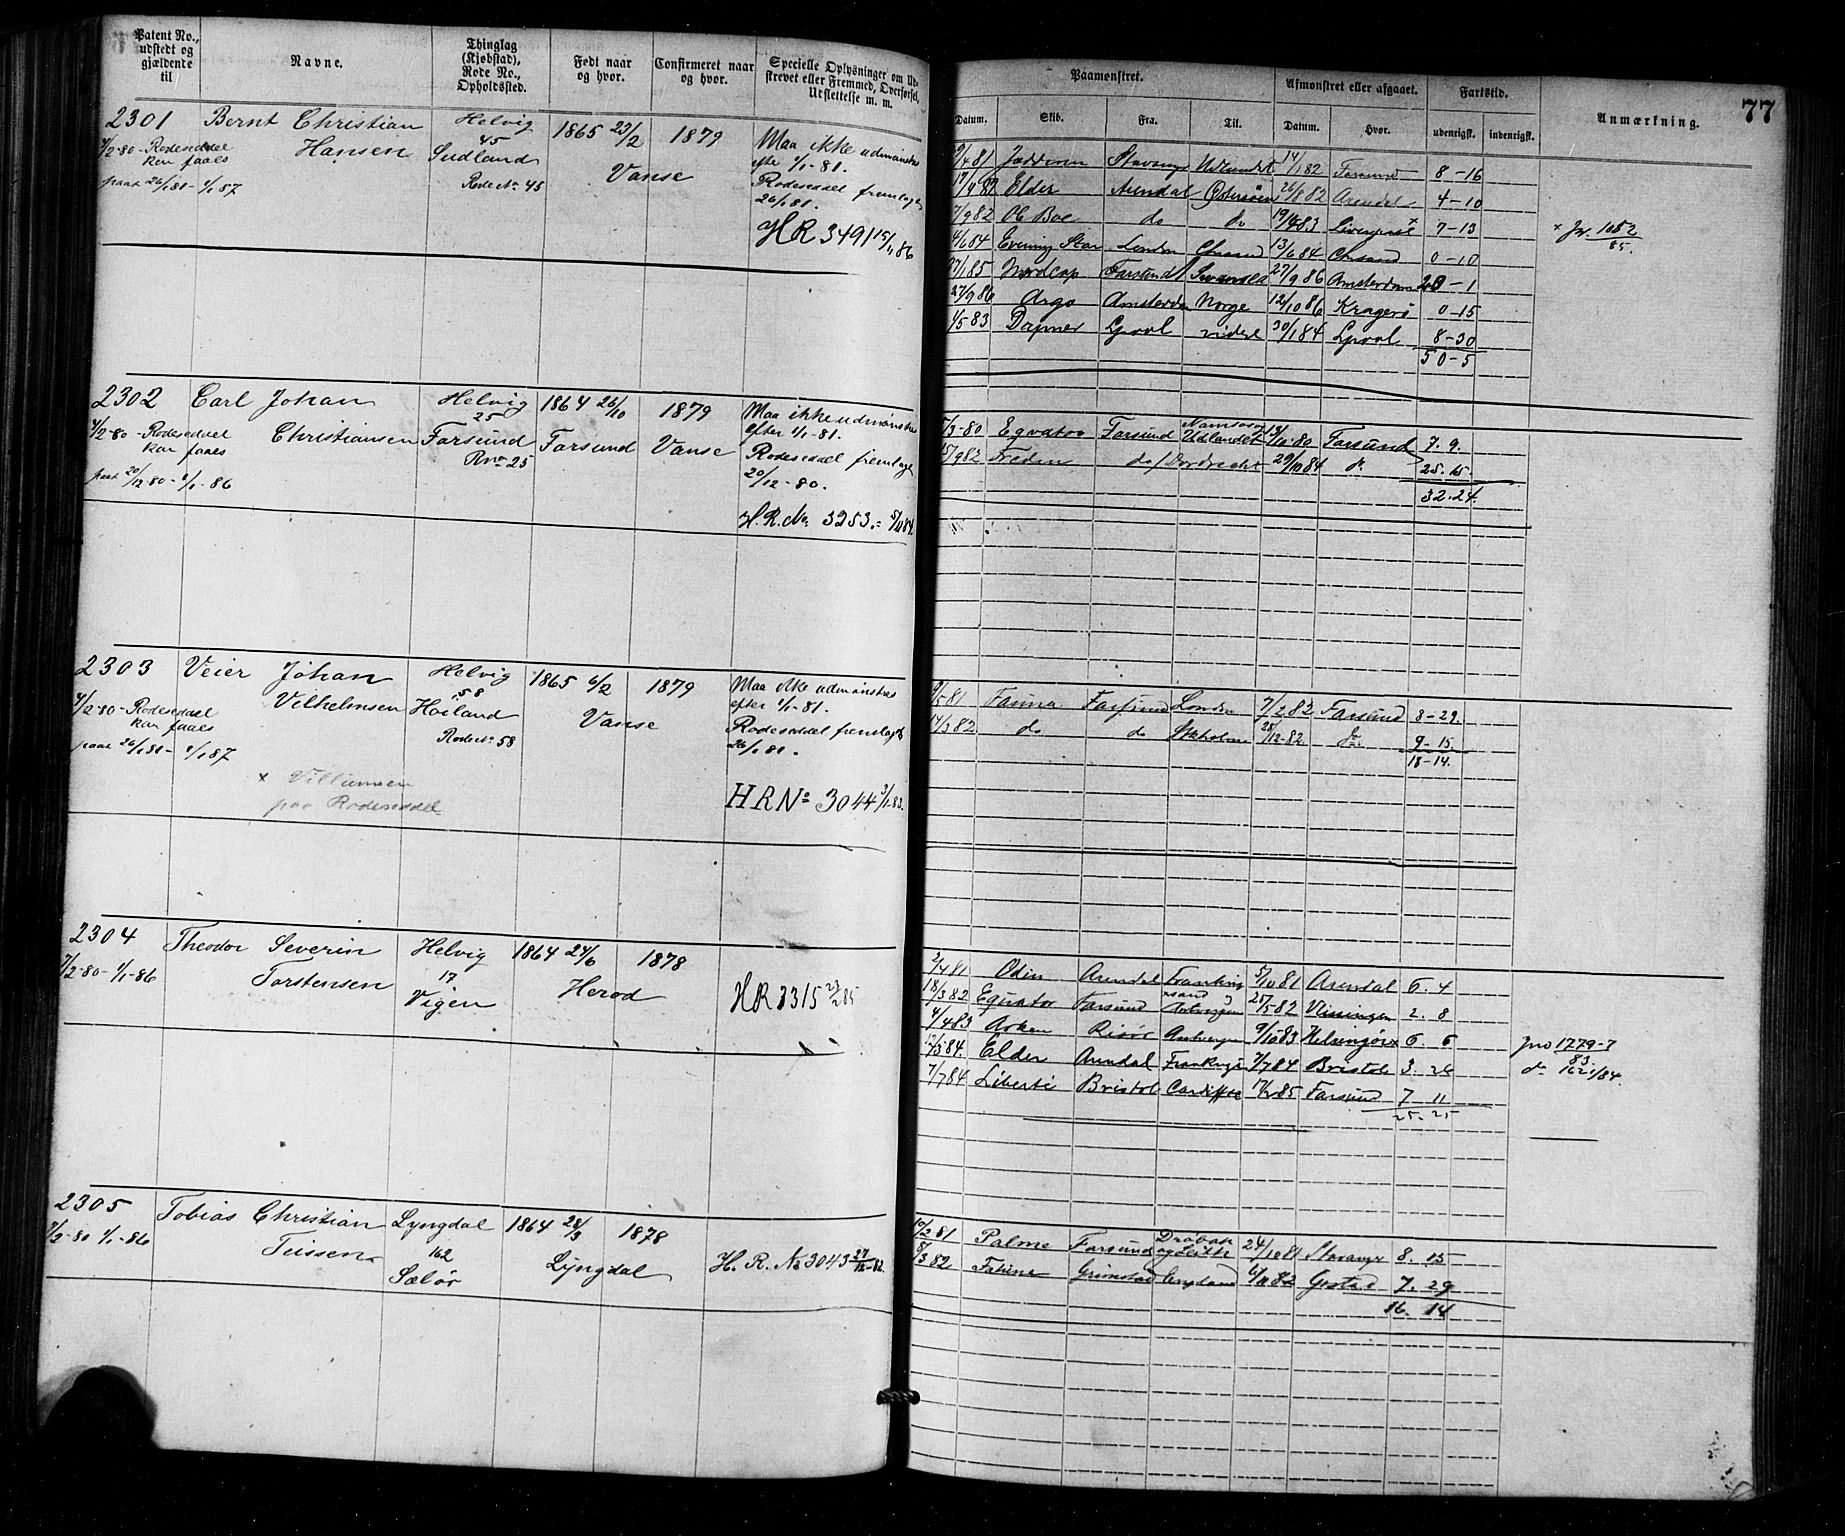 Patent No.,
udstedt og
gjældende
til
Navne.
Thinglag
(Kjøbstad),
Rode No.,
Opholdssted.
Født naar
og hvor.
Confirmeret naar
og hvor.
Specielle Oplysninger om Ud-
skrevet eller Fremmed, Overførsel,
Udslettelse m. m.
2301 Bernt Christian Helvig 1865 23/2 1879 Maa ikke udmønstres
1/2-80 - Rodeseddel Hansen 45 Vanse efter 1/1-81.
kan faaes Sudland Rodeseddel fremlagt
paat 26/1 81 - 1/1 87 Rode No 45 26/1 81.
HR 3491 15/11 86
2302 Carl Johan Helvig 1864 26/10 1879 Maa ikke udmønstres
1/2-80 - Rodeseddel Christiansen 25 Farsund Farsund Vanse efter 1/1-81.
kan faaes Rno 25 Rodeseddel fremlagt
paat 20/12-80 - 1/1-86 20/12-80.
H.R.No. 3253
2303 Veier Johan Helvig 1865 6/2 1879 Maa ikke udmønstres
1/2-80 - Rodeseddel Vilhelmsen 58 Vanse efter 1/1-81.
kan faaes Hoiland Rodeseddel fremlagt
paat 26/1 81 - 1/1 87 Rode No 58 26/1 81.
x Villiumsen
paa Rodeseddel
HR No 3044 3/1 83.
2304 Theodor Severin Helvig 1864 24/6 1878
7/2-80 - 1/1-86 Torstensen 17 Herod HR 3315 23/2 85
Vigen
2305 Tobias Christian Lyngdal 1864 28/3 1878
7/2-80 1/1-86 Teissen 162 Lyngdal H. R. No 3043 27/12-82.
Sælør
77
Paamønstret.
Afmønstret eller afgaaet.
Fartstid.
Anmærkning.
Datum. Skib. Fra. Til. Datum. Hvor. udenrigsk. indenrigsk.
Stavanger Udlandet 14/1 82 8-16
Elder Arendal Østersøen 26/8 82 Arendal 4-10
7/9 82 do do 19/4 83 Liverpool x 7-13 x Jr. 1052/85.
4/6 84 Evening Star London Chrsand 13/6 84 Chrsand 0-10
27/1 85 Nordcap Farsund 27/9 86 Amsterdam 20-1
27/9 86 Argo Amsterdam Norge 12/10 86 Kragerø 0-15
1/5 83 Lpool 30/1 84 Lpool 8-30
50-5
3-80 Eqvator Farsund Namsos
Udlandet 80 Farsund 7. 9.
15/9 82 do / Dordrecht 29/10 84 do 25. 15.
32. 24.
81 Fauna Farsund London 7/2 82 Farsund 8-29.
14/3 82 do do Stkholm 28/12-82 do 9-15
18-14.
2/4 81 Odin Arendal 5/10 81 Arendal 6. 4
18/3 82 Equator Farsund 25/5-82 Vlissingen 2. 8
4/4 83 Risør Antwerpen 9/10 83 Helsingør x 6. 6 Jno 1779-7/83.
12/5 84. Elder Arendal 7/7 84 Bristol 3. 26 do 1621/84.
7/7 84 Liberté Bristol Cardiff 17/2 85 Farsund 7 11
25. 25
10/2 81 Palme Farsund Drøbak
og Leith 24/10 81 Stavanger 8. 15
8/3 82 Grimstad England 82 7. 29
16. 14